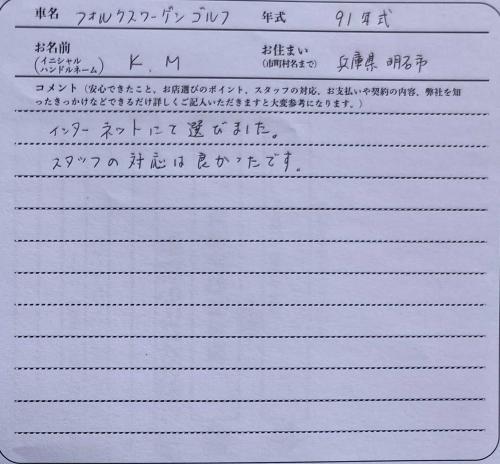 車名 フォルクスワーゲン ゴルフ 年式 91年式
お名前 (イニシャル ハンドルネーム) K.M お住まい (市町村名まで) 兵庫県 明石市
コメント(安心できたこと、お店選びのポイント、スタッフの対応、お支払いや契約の内容、弊社を知
ったきっかけなどできるだけ詳しくご記入いただきますと大変参考になります。)
インターネットにて選びました。
スタッフの対応は良かったです。